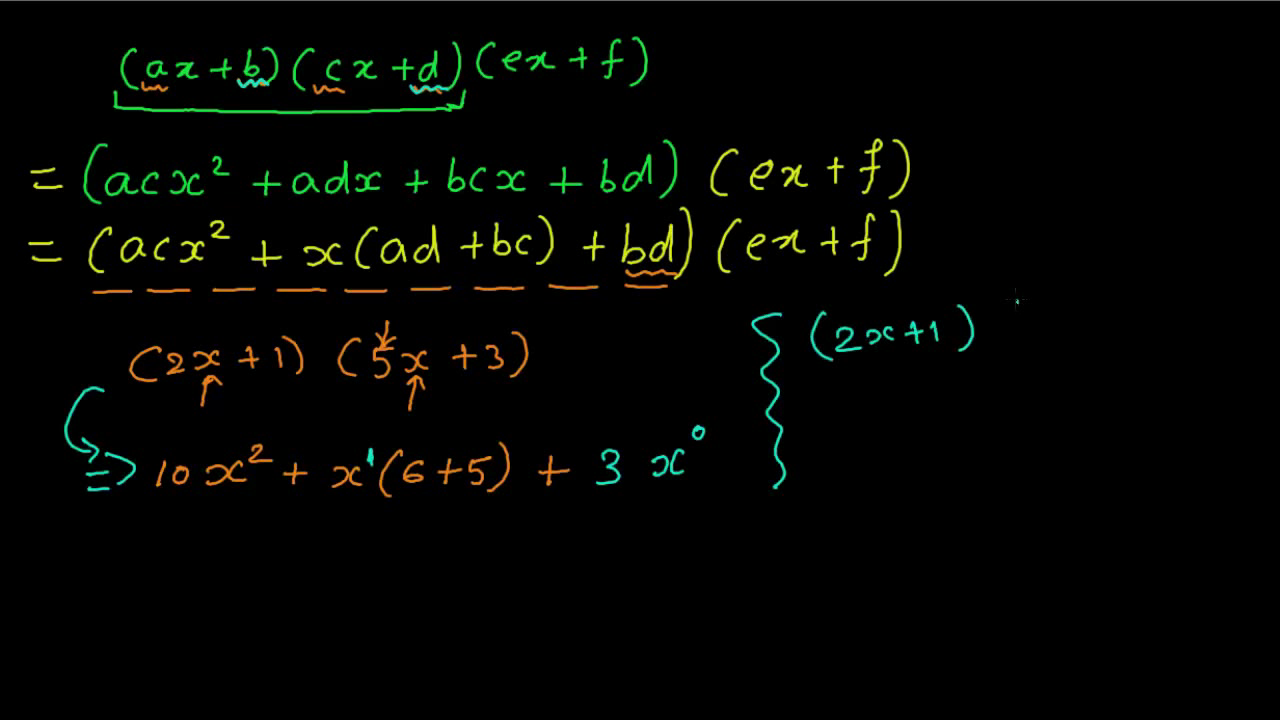 (ax+b)(cx+d)(ex+f)
= (acx² + adx + bcx + bd) (ex+f)
= (acx² + x(ad+bc) + bd) (ex+f)
(2x+1) (5x+3)
(2x+1)
=> 10x² + x¹(6+5) + 3x⁰